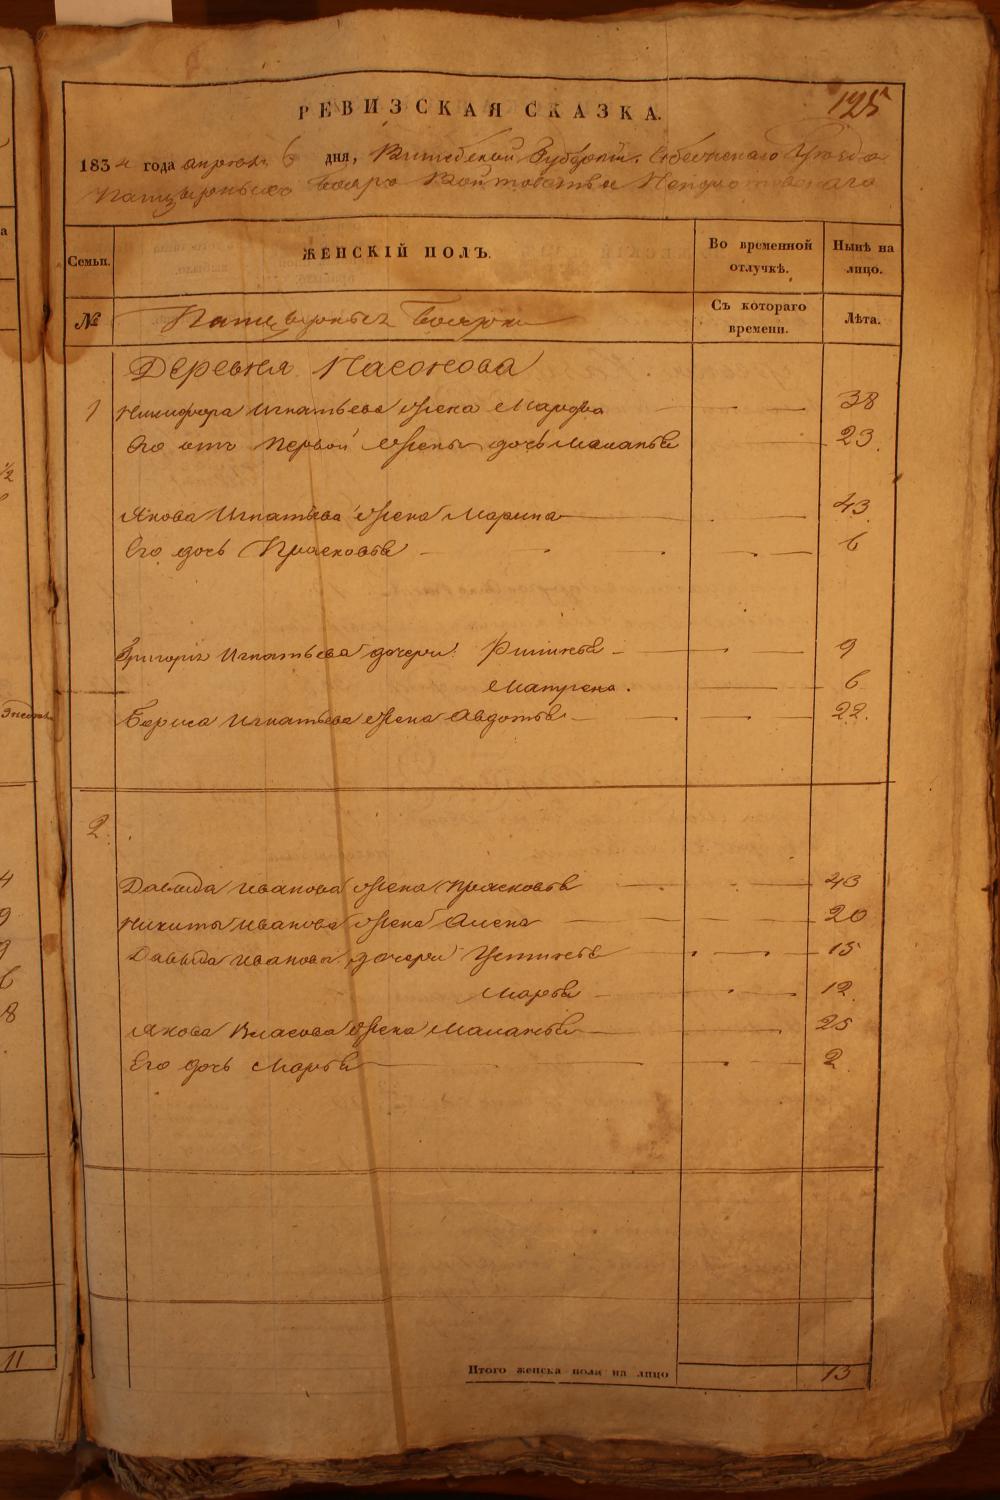 125
РЕВИЗСКАЯ СКАЗКА.
1834 года апреля 6 дня, Витебской Губернiи. Себежскаго Уезда
Панцырныхъ Бояръ Войтовства Непоротовскаго
Семьи.
ЖЕНСКIЙ ПОЛЪ.
Во временной отлучкѣ.
Нынѣ на лицо.
№
Панцырныхъ Бояръ
Съ котораго времени.
Лѣта.
Деревня Насонова
1 Никифора Игнатьева жена Марфа 38
Его отъ первой жены дочь Маланья 23
Якова Игнатьева жена Марина 43
Его дочь Прасковья 6
Григорiя Игнатьева дочери: 9
Матрена. 6
Бориса Игнатьева жена Авдотья 22.
2.
Давыда Иванова жена Прасковья 43
Никиты Иванова жена Алена 20
Давыда Иванова дочери Устинья 15
Марья 12
Якова Власова жена Маланья 25
Его дочь Марья 2
Итого женска пола на лицо 13
½
4
9
9
6
8
11